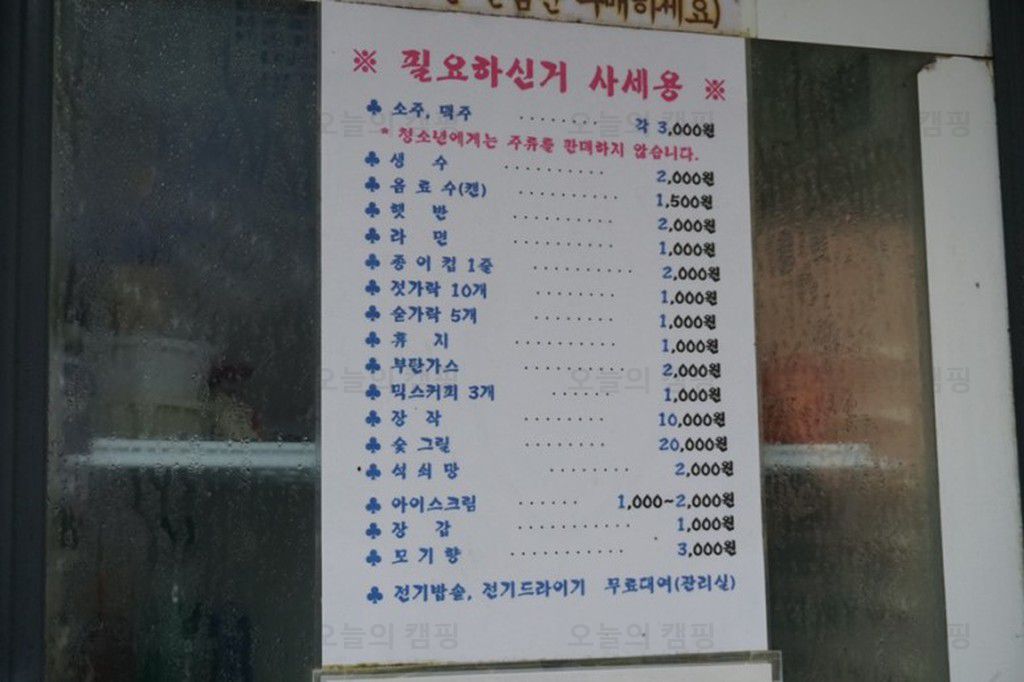 구매하세요)
※ 필요하신거 사세용 ※
♣ 소주, 맥주 ········ 각 3,000원
* 청소년에게는 주류를 판매하지 않습니다.
♣ 생 수 ·········· 2,000원
♣ 음 료 수(캔) ·········· 1,500원
♣ 햇 반 ·········· 2,000원
♣ 라 면 ·········· 1,000원
♣ 종 이 컵 1줄 ·········· 2,000원
♣ 젓가락 10개 ········ 1,000원
♣ 숟가락 5개 ········ 1,000원
♣ 휴 지 ·········· 1,000원
♣ 부탄가스 ········ 2,000원
♣ 믹스커피 3개 ······ 1,000원
♣ 장 작 ········ 10,000원
♣ 숯 그릴 ········ 20,000원
♣ 석 쇠 망 ········ 2,000원
♣ 아이스크림 ······ 1,000~2,000원
♣ 장 갑 ··········· 1,000원
♣ 모 기 향 ··········· 3,000원
♣ 전기밥솥, 전기드라이기 무료대여(관리실)
오늘의 캠핑